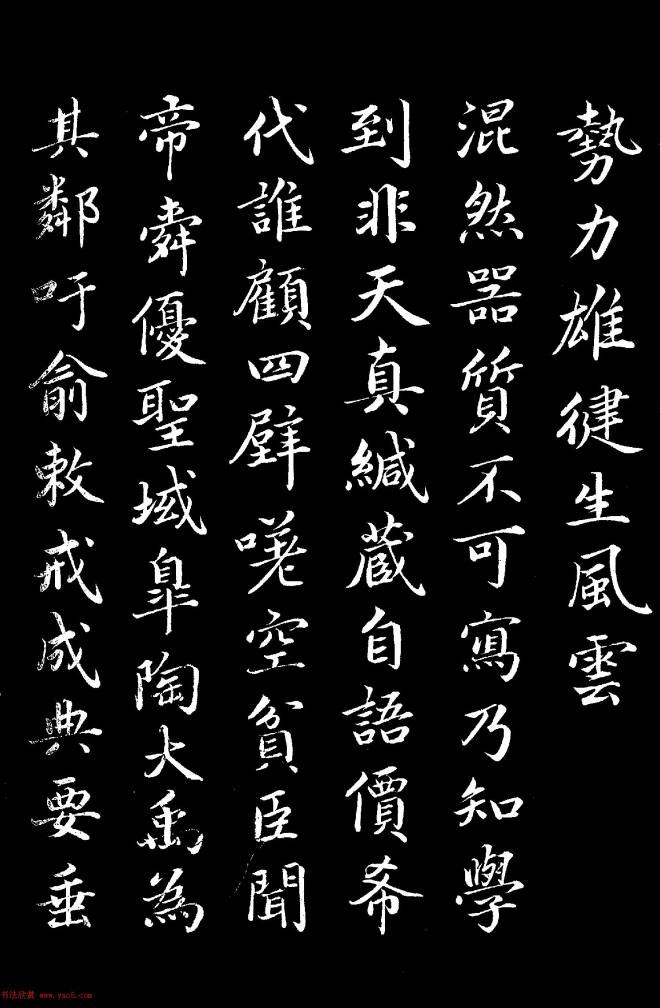 勢力雄健生風雲
混然器質不可寫乃知學
到非天真緘蔵自語價希
代誰顧四壁嗟空貧臣聞
帝舜優聖域皐陶大禹為
其鄰吁俞敕戒成典要垂
书法欣赏 www.yac8.com